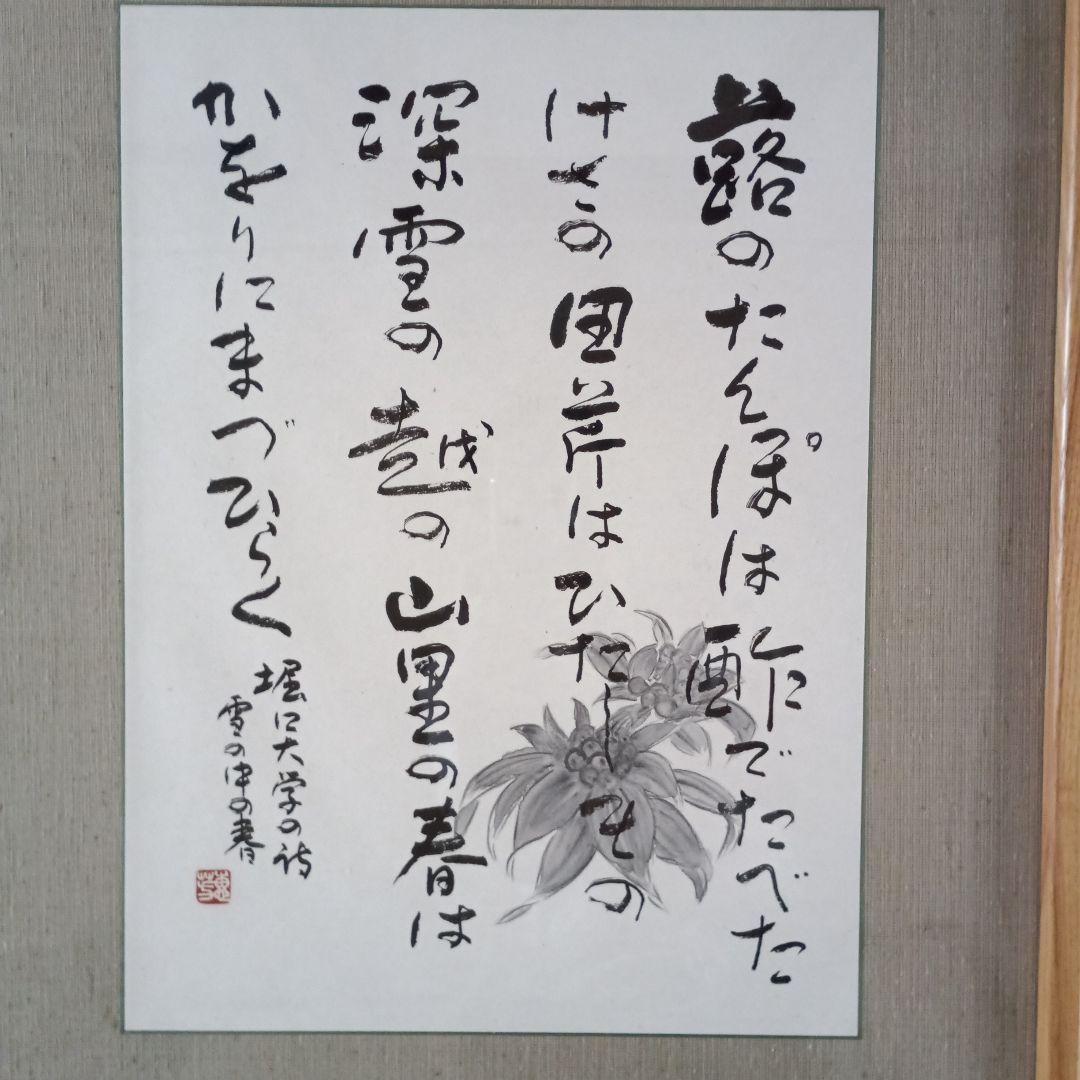 蕗のたんぽは酢でたべた
けさの田芹はひたしもの
深雪の越の山里の春は
かをりにまづひらく
堀口大学の詩
雪の中の春